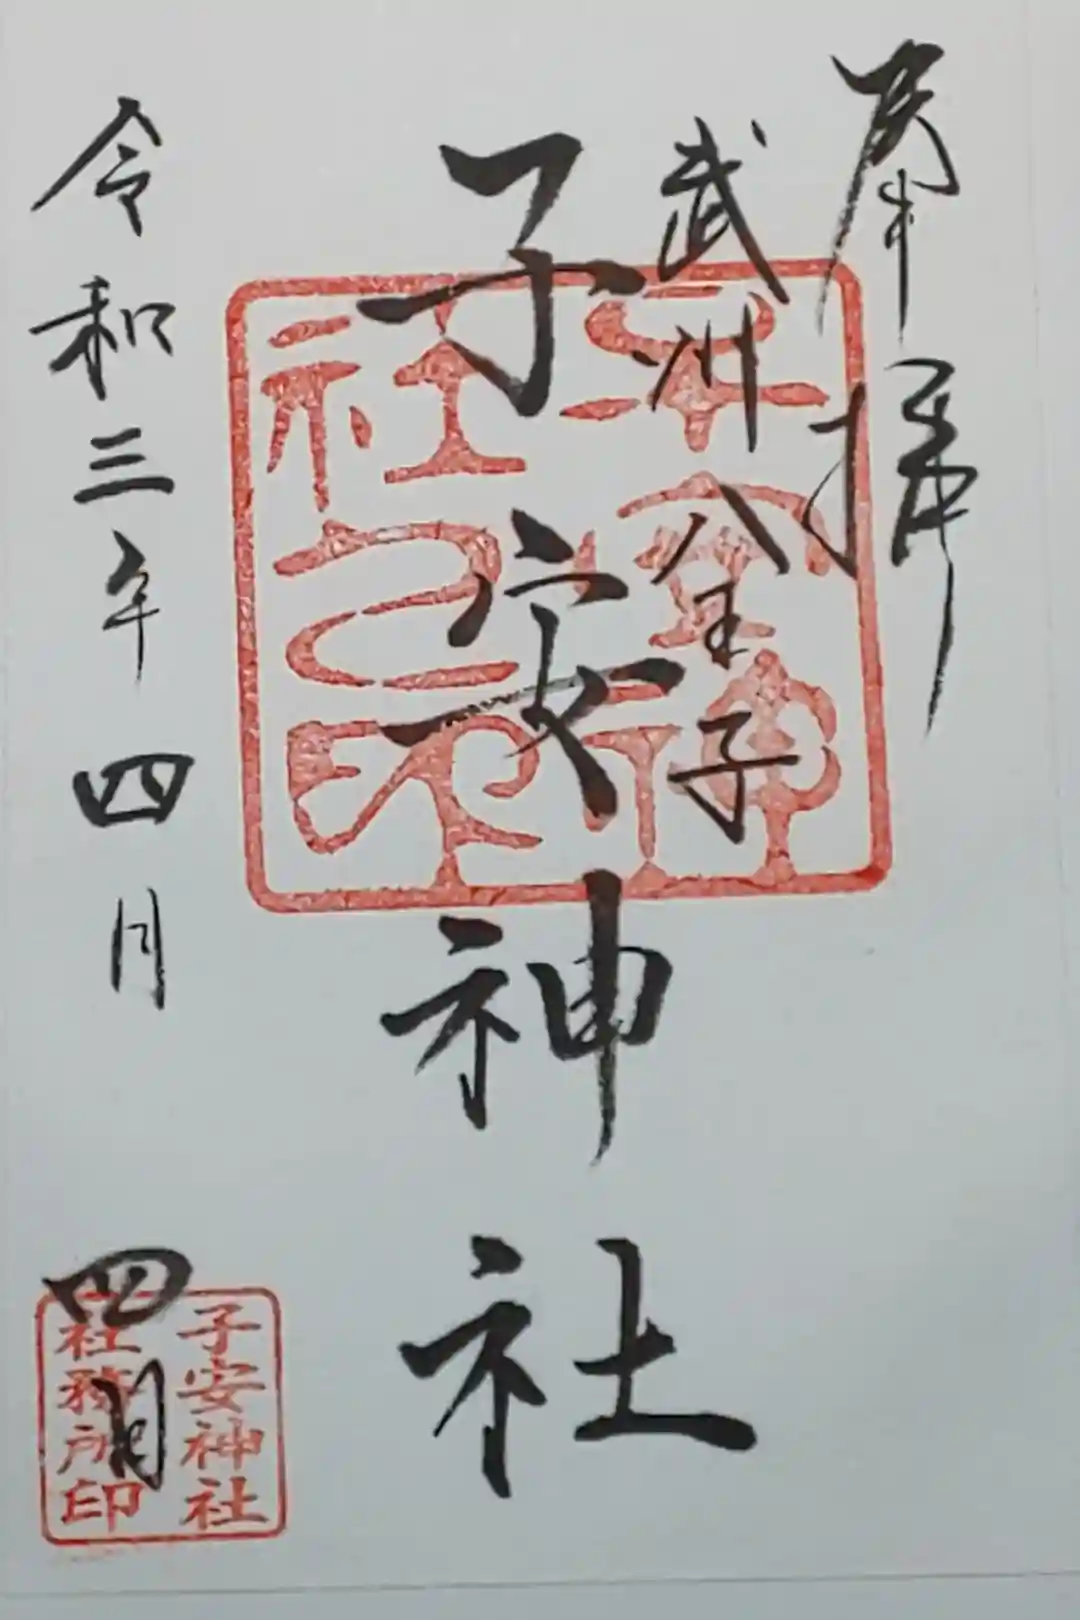 奉拝
武州八王子
子安神社
令和三年四月四日
子安神社
之印
子安神社
社務所印